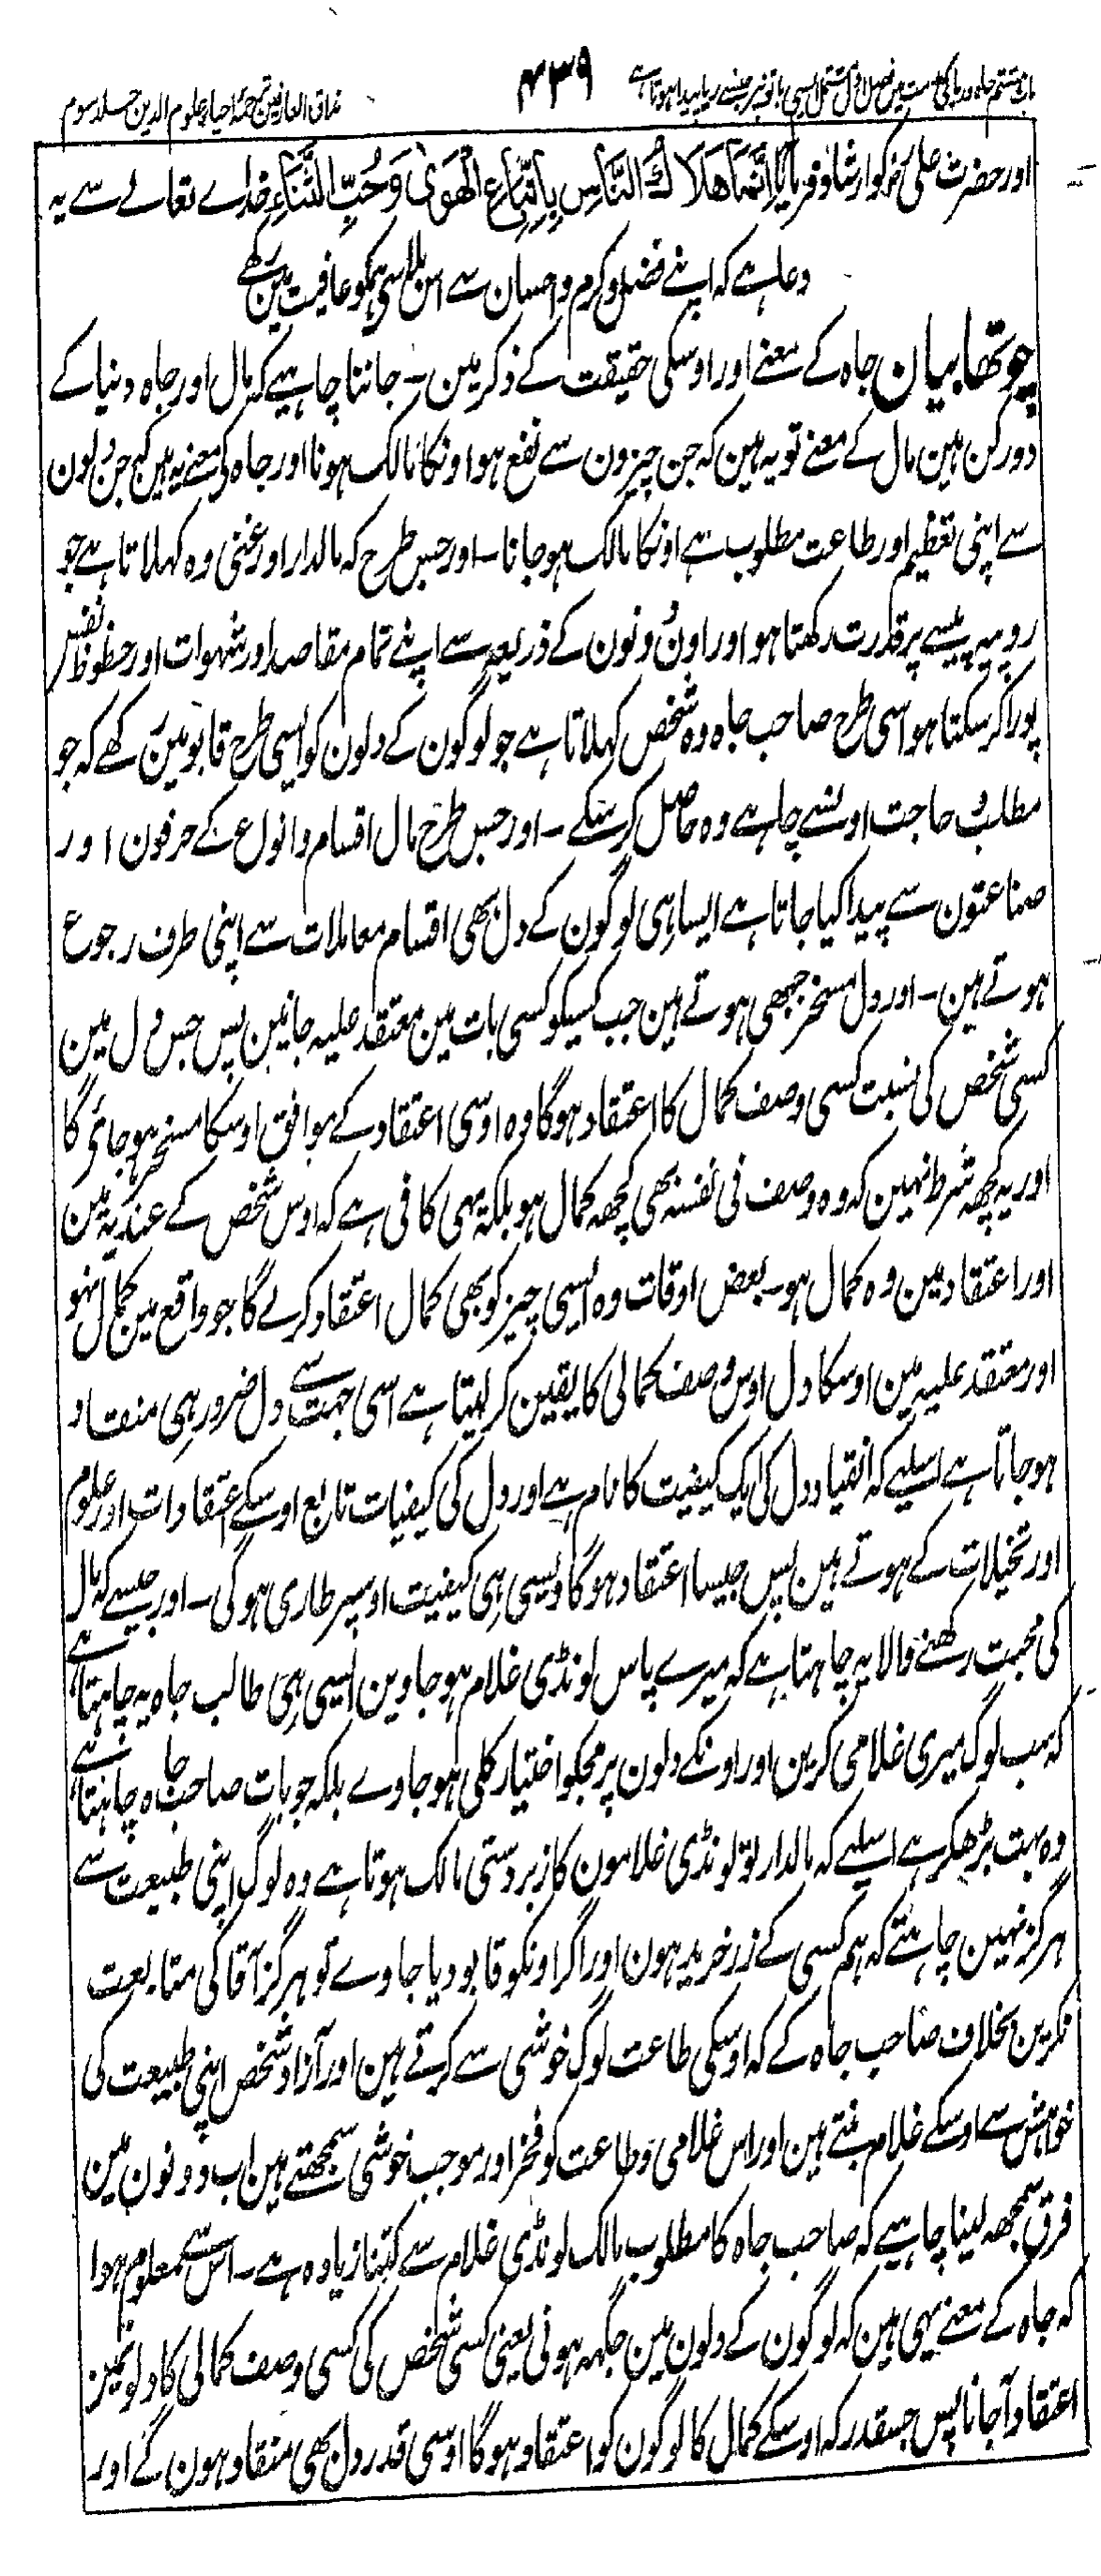 باب ہشتم جاہ و ریا کی مذمت میں فصل اول مشتمل ایسی باتوں پر جنسے ریا پیدا ہوتا ہے
۴۳۹
مذاق العارفین ترجمۂ احیاء علوم الدین جلد سوم
اور حضرت علیؓ کو ارشاد فرمایا اِنَّمَا هَلَاكُ النَّاسِ بِاتِّبَاعِ الْهَوٰى وَحُبِّ الثَّنَاءِ خداے تعالےٰ سے یہ
دعا ہے کہ اپنے فضل و کرم و احسان سے اس بلا سی ہمکو عافیت مین رکھے
چوتھا بیان جاہ کے معنے اور اوسکی حقیقت کے ذکر مین ۔ جاننا چاہیے کہ مال اور جاہ دنیا کے
دو رکن ہین مال کے معنے تو یہ ہین کہ جن چیزون سے نفع ہو اونکا مالک ہونا اور جاہ کے معنے یہ ہین کہ جن دلون
سے اپنی تعظیم اور طاعت مطلوب ہے اونکا مالک ہو جانا ۔ اور جس طرح کہ مالدار اور غنی وہ کہلاتا ہے جو
روپیہ پیسے پر قدرت رکھتا ہو اور اون دونون کے ذریعہ سے اپنے تمام مقاصد اور شہوات اور حظوظ نفس
پورا کر سکتا ہو اسی طرح صاحب جاہ وہ شخص کہلاتا ہے جو لوگون کے دلون کو ایسی طرح قابو مین رکھے کہ جو
مطلب و حاجت اونسے چاہے وہ حاصل کر سکے ۔ اور جس طرح مال اقسام و انواع کے حرفون اور
صناعتون سے پیدا کیا جاتا ہے ایسا ہی لوگون کے دل بھی اقسام معاملات سے اپنی طرف رجوع
ہوتے ہین ۔ اور دل مسخر جبھی ہوتے ہین جب کسیکو کسی بات مین معتقد علیہ جانین پس جس دل مین
کسی شخص کی نسبت کسی وصف کمال کا اعتقاد ہوگا وہ اوسی اعتقاد کے موافق اوسکا مسخر ہو جائیگا
اور یہ کچھ شرط نہین کہ وہ وصف فی نفسہ بھی کچھ کمال ہو بلکہ یہی کافی ہے کہ اوس شخص کے عندیہ مین
اور اعتقاد مین وہ کمال ہو۔ بعض اوقات وہ ایسی چیز کو بھی کمال اعتقاد کرے گا جو واقع مین کمال نہو
اور معتقد علیہ مین اوسکا دل اوس وصف کمالی کا یقین کر لیتا ہے اسی جہت سے دل ضرور ہی منقاد
ہو جاتا ہے اسلیے کہ انقیاد دل کی ایک کیفیت کا نام ہے اور دل کی کیفیات تابع اوسکے اعتقادات اور علوم
اور تخیلات کے ہوتے ہین پس جیسا اعتقاد ہوگا ویسی ہی کیفیت اوسپر طاری ہوگی ۔ اور جیسے کہ مال
کی محبت رکھنے والا یہ چاہتا ہے کہ میرے پاس لونڈی غلام ہو جاوین ایسی ہی طالب جاہ یہ چاہتا ہے
کہ سب لوگ میری غلامی کرین اور اونکے دلون پر مجکو اختیار کلی ہو جاوے بلکہ جو بات صاحب جاہ چاہتا ہے
وہ بہت بڑھکر ہے اسلیے کہ مالدار تو لونڈی غلامون کا زبردستی مالک ہوتا ہے وہ لوگ اپنی طبیعت سے
ہرگز نہین چاہتے کہ ہم کسی کے زر خرید ہون اور اگر اونکو قابو دیا جاوے تو ہرگز آقا کی متابعت
نکرین بخلاف صاحب جاہ کے کہ اوسکی طاعت لوگ خوشی سے کرتے ہین اور آزاد شخص اپنی طبیعت کی
خواہش سے اوسکے غلام بنتے ہین اور اس غلامی و طاعت کو فخر اور موجب خوشی سمجھتے ہین اب دونون مین
فرق سمجھ لینا چاہیے کہ صاحب جاہ کا مطلوب مالک لونڈی غلام سے کتنا زیادہ ہے ۔ اس سے معلوم ہوا
کہ جاہ کے معنے یہی ہین کہ لوگون کے دلون مین جگہ ہونی یعنی کسی شخص کی کسی وصف کمالی کا دلونمین
اعتقاد آجانا پس جسقدر کہ اوسکے کمال کا لوگون کو اعتقاد ہوگا اوسی قدر دل بھی منقاد ہون گے اور